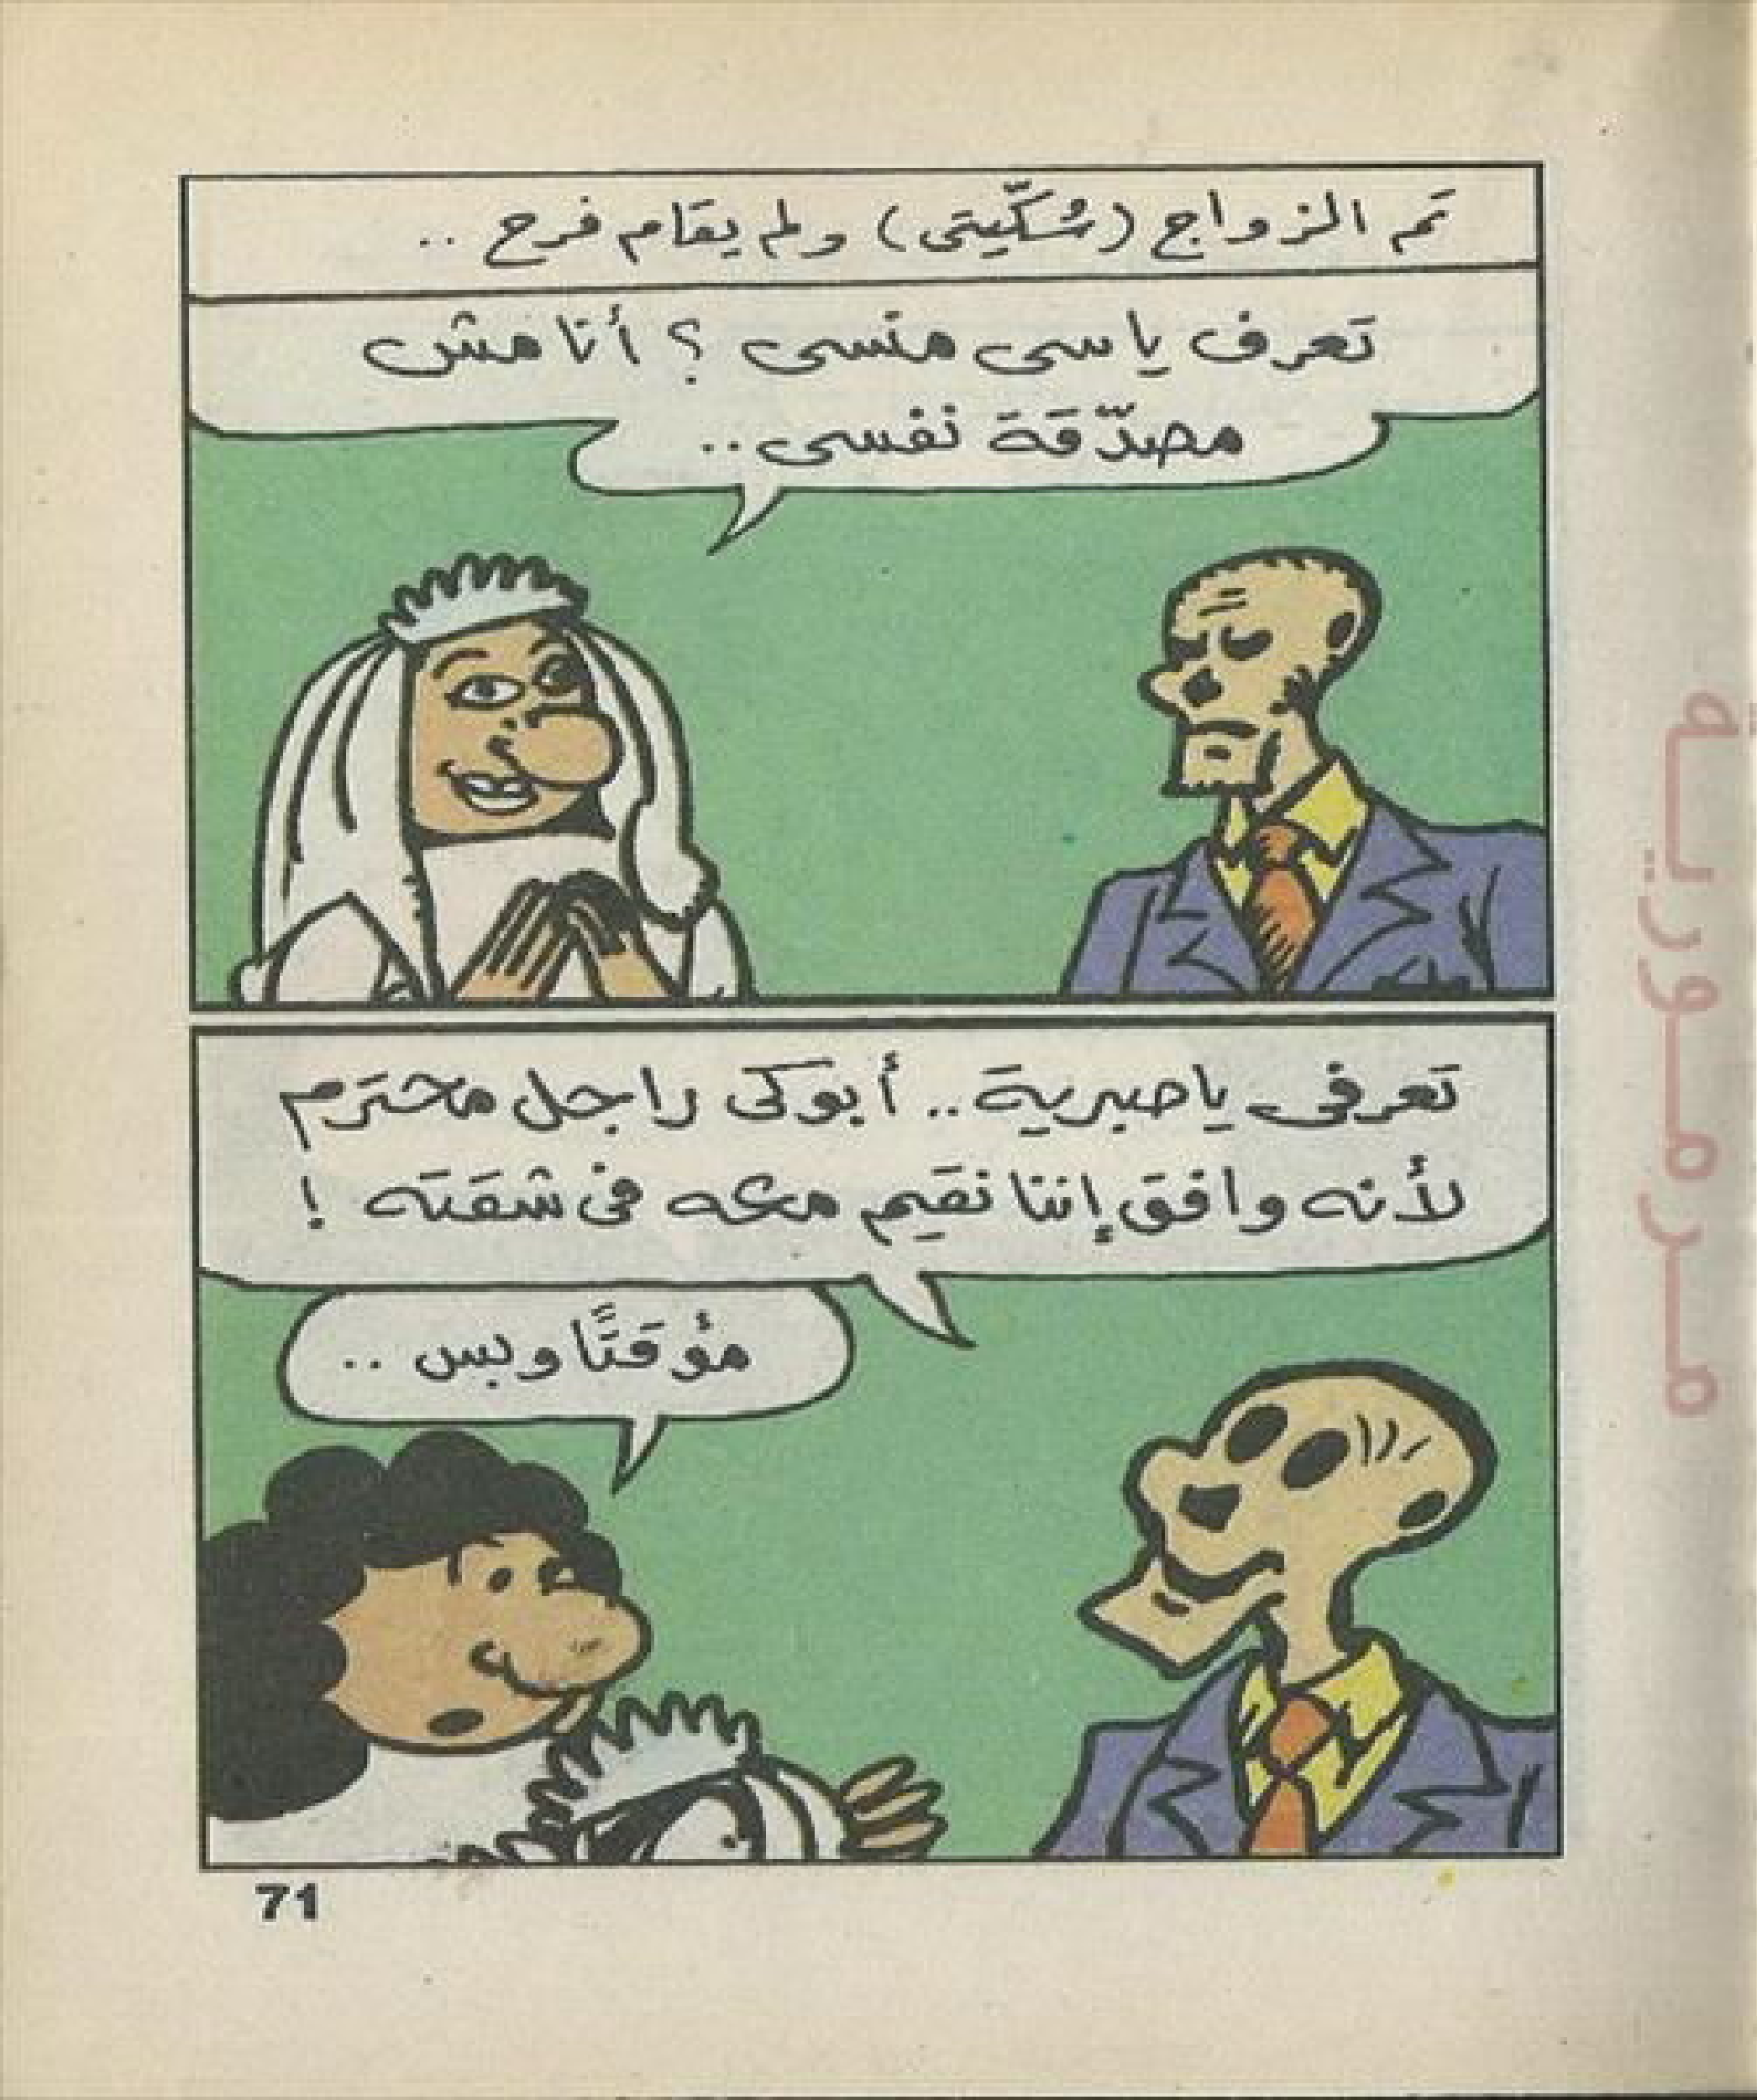 تم الزواج (سُكّيتى) ولم يقام فرح ..
تعرف ياسى منسى ؟ أنا مش
مصدّقة نفسى ..
تعرفى ياصبرية .. أبوكى راجل محترم
لأنه وافق إننا نقيم معه فى شقته !
مؤقتًا وبس ..
71
مرمورية